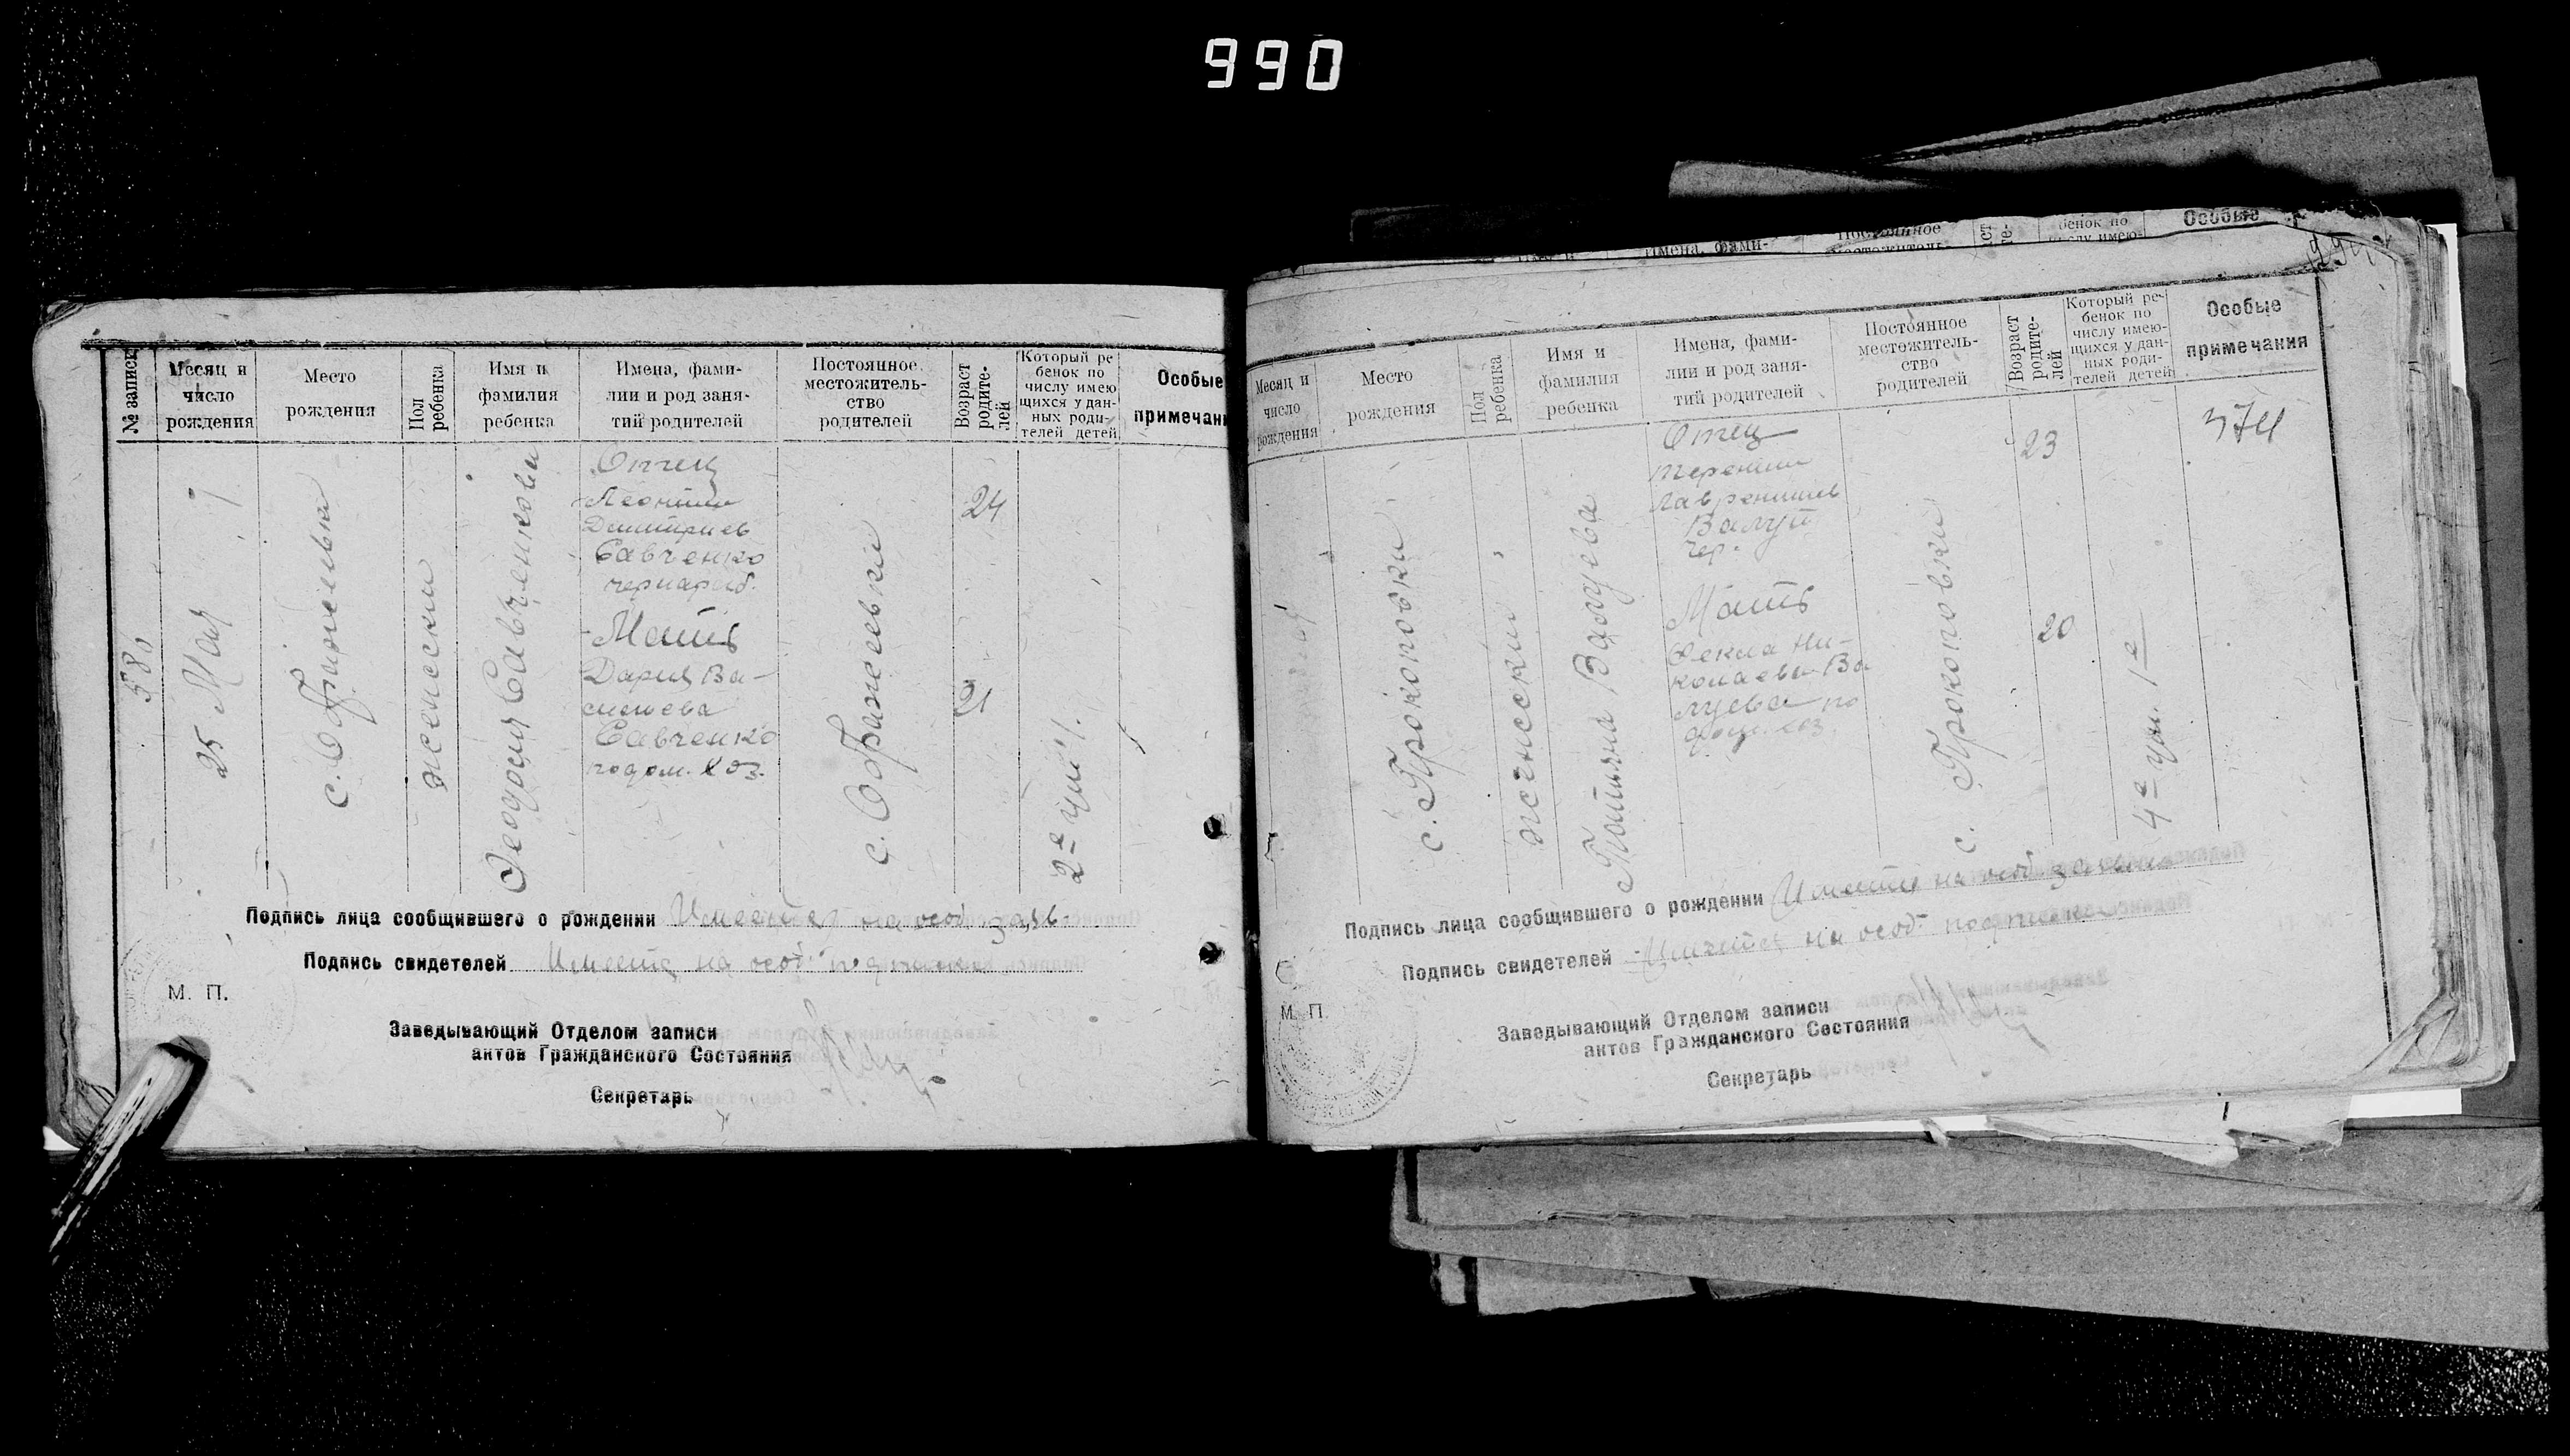 990
№ записи
Месяц и
число
рождения
Место
рождения
Пол
ребенка
Имя и
фамилия
ребенка
Имена, фами-
лии и род заня-
тий родителей
Постоянное
местожитель-
ство
родителей
Возраст
родите-
лей
Который ре
бенок по
числу имею
щихся у дан-
ных роди-
телей детей
Особые
примечани
25 Мая
женский
Феодосия Савченкова
Отец
Леонтий
Дмитриев
Савченко
Мать
Дария Ва-
сильева
Савченко
по дом. хоз.
24
21
2е
Подпись лица сообщившего о рождении Имеется на особ. заяв.
Подпись свидетелей Имеется на особ. подписке
М. П.
Заведывающий Отделом записи
актов Гражданского Состояния
Секретарь
имена, фами-
Постоянное
местожитель-
бенок по
числу имею-
Особые
Месяц и
число
рождения
Место
рождения
Пол
ребенка
Имя и
фамилия
ребенка
Имена, фами-
лии и род заня-
тий родителей
Постоянное
местожитель-
ство
родителей
Возраст
родите-
лей
Который ре-
бенок по
числу имею-
щихся у дан-
ных роди-
телей детей
Особые
примечания
с. Прокоповки
женский
Татьяна Валуева
Отец
Терентий
Лаврентиев
Валуй
чер.
Мать
Фекла Ни-
колаева Ва
луева по
дом. хоз.
с. Прокоповки
23
20
4е 1е
374
Подпись лица сообщившего о рождении Имеется на особ. заявл.
Подпись свидетелей Имеется на особ. подписке
М. П.
Заведывающий Отделом записи
актов Гражданского Состояния
Секретарь